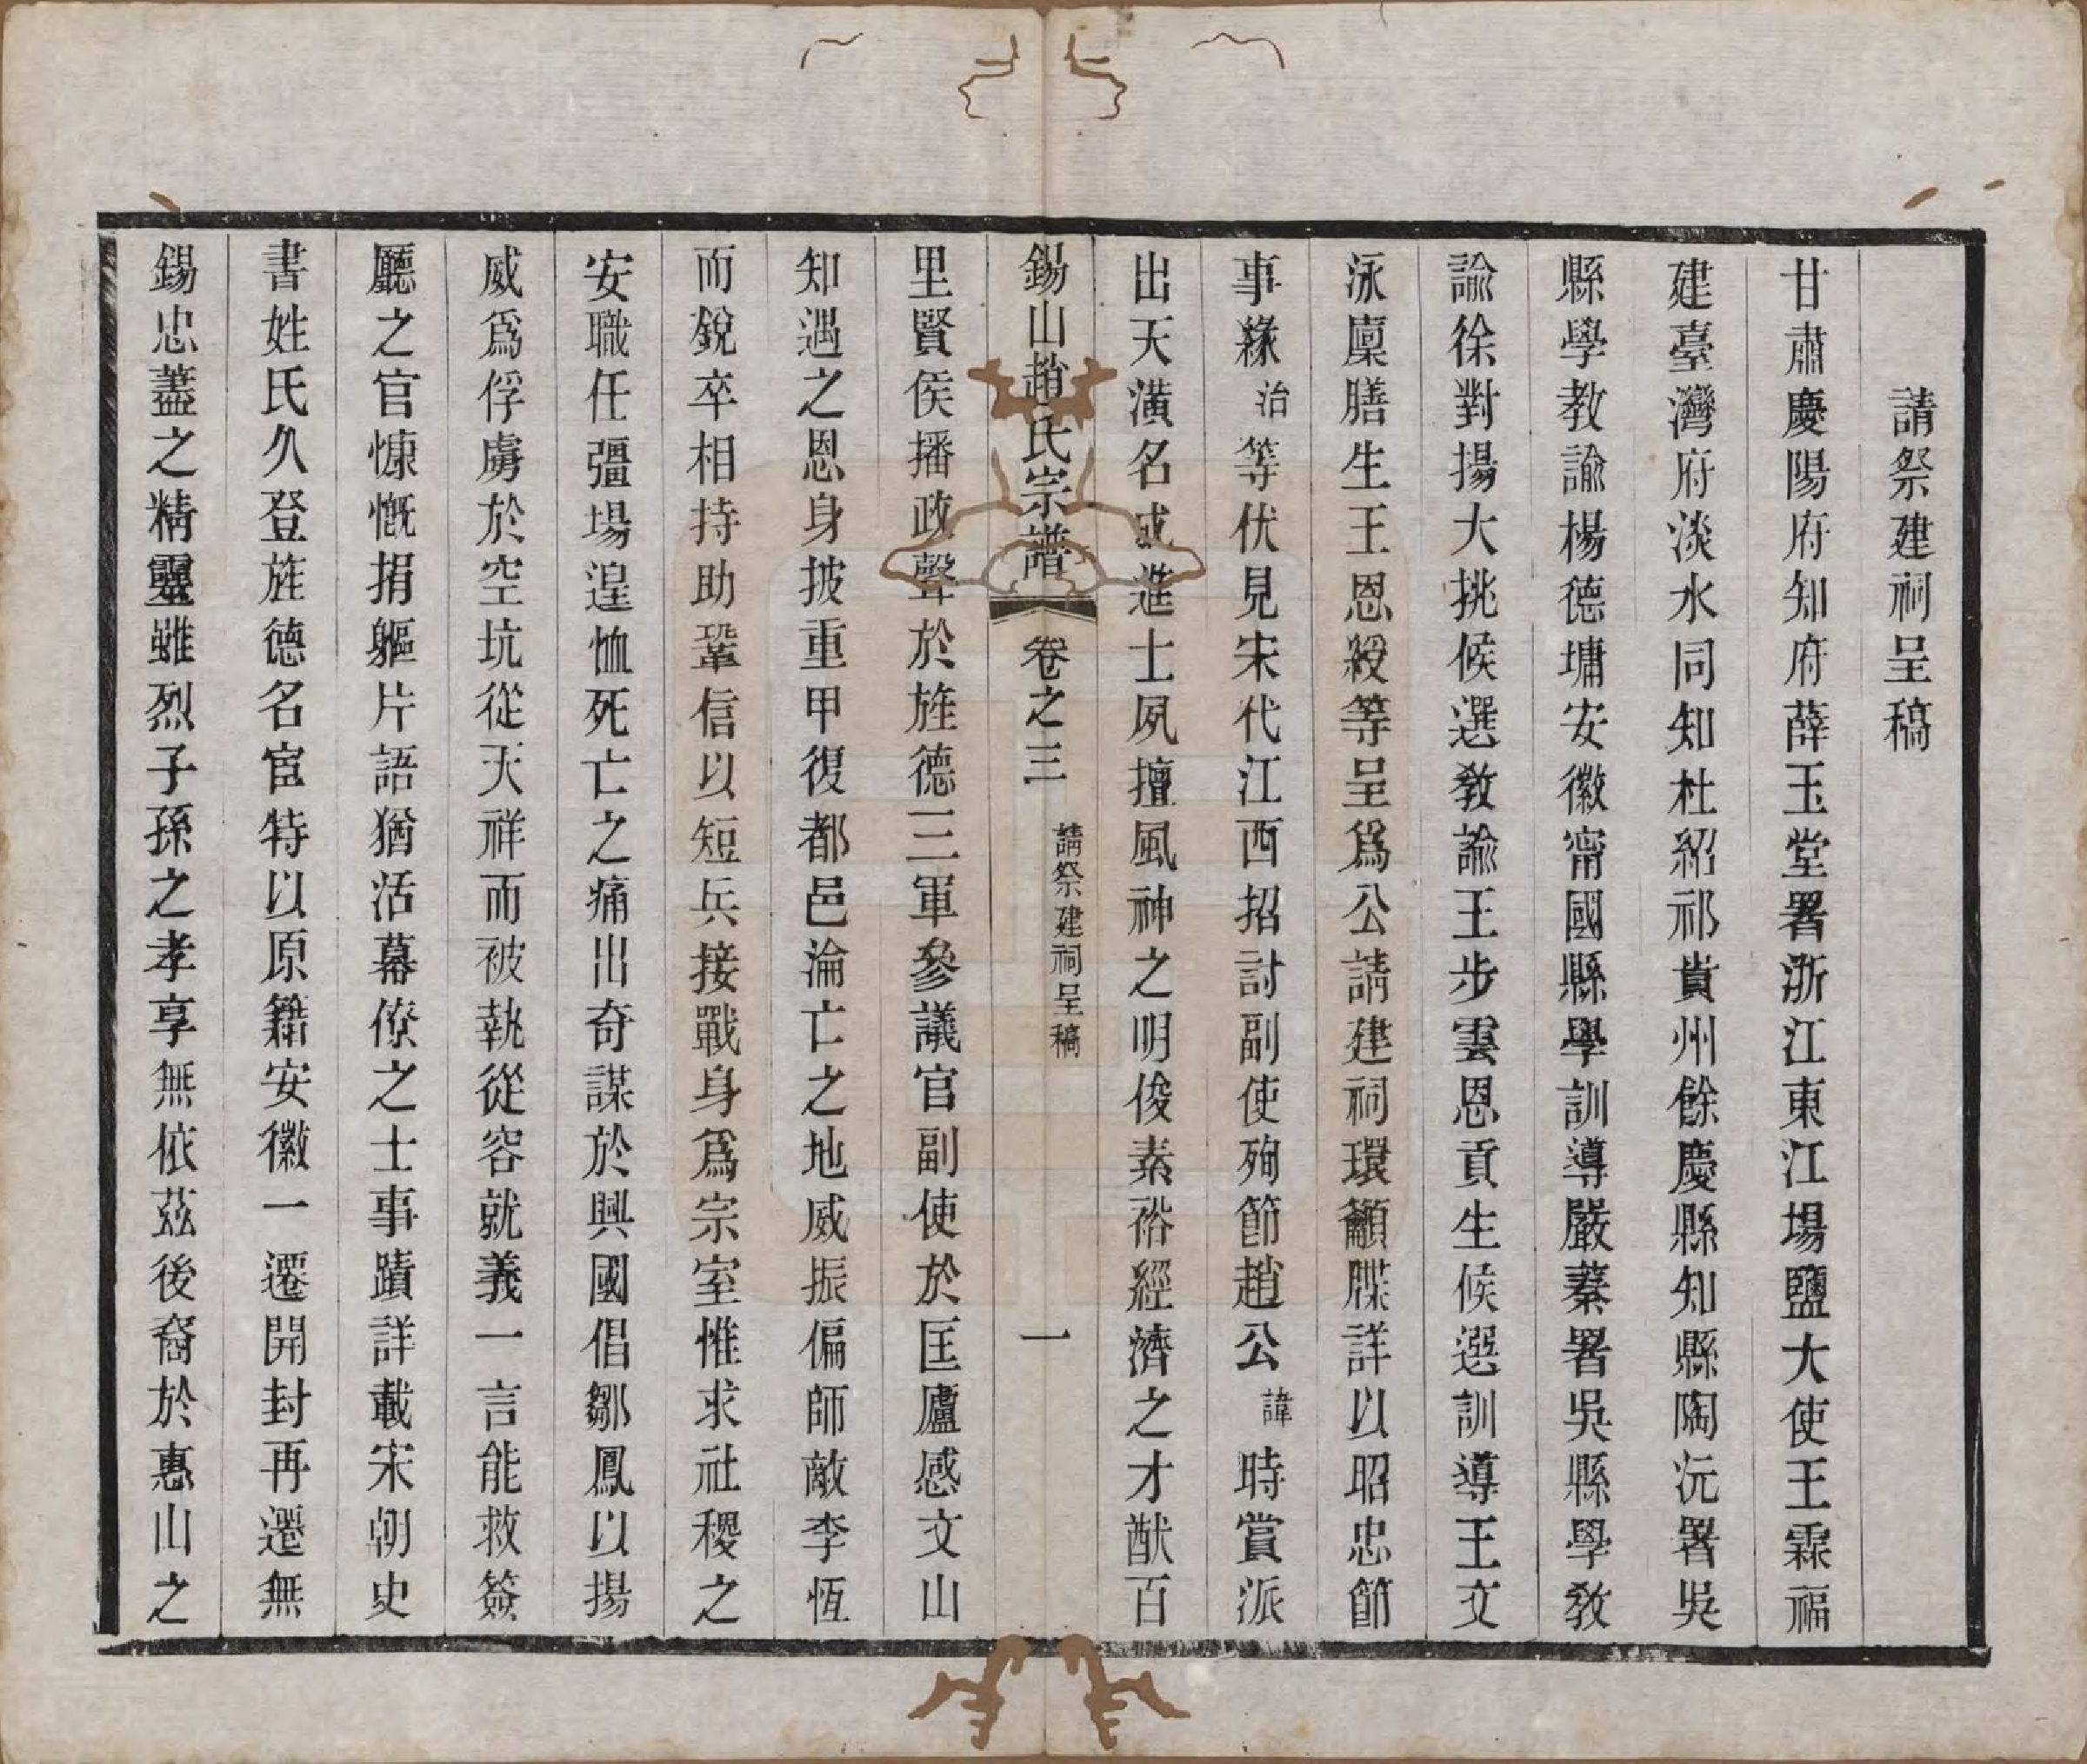 請祭建祠呈稿
甘肅慶陽府知府薛玉堂署浙江東江場鹽大使王霖福
建臺灣府淡水同知杜紹祁貴州餘慶縣知縣陶沅署吳
縣學教諭楊德墉安徽甯國縣學訓導嚴蓁署吳縣學教
諭徐對揚大挑候選教諭王步雲恩貢生候選訓導王文
泳廩膳生王恩綬等呈爲公請建祠環籲牒詳以昭忠節
事緣治等伏見宋代江西招討副使殉節趙公諱時賞派
出天潢名成進士夙擅風神之明俊素裕經濟之才猷百
錫山趙氏宗譜 卷之三 請祭建祠呈稿 一
里賢侯播政聲於旌德三軍參議官副使於匡廬感文山
知遇之恩身披重甲復都邑淪亡之地威振偏師敵李恆
而銳卒相持助鞏信以短兵接戰身爲宗室惟求社稷之
安職任彊場遑恤死亡之痛出奇謀於興國倡鄒鳳以揚
威爲俘虜於空坑從天祥而被執從容就義一言能救簽
廳之官慷慨捐軀片語猶活幕僚之士事蹟詳載宋朝史
書姓氏久登旌德名宦特以原籍安徽一遷開封再遷無
錫忠藎之精靈雖烈子孫之孝享無依茲後裔於惠山之